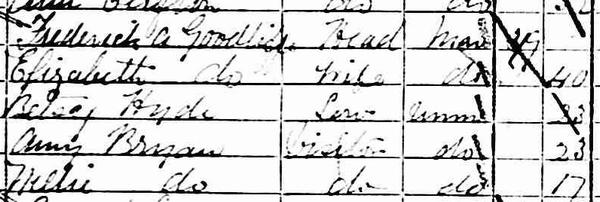 do do
Frederick A Goodliffe Head Mar 49
Elizabeth do Wife do 40
Betsy Hyde Serv Unm 33
Amy Bryan Visitor do 23
Nellie do do do 17